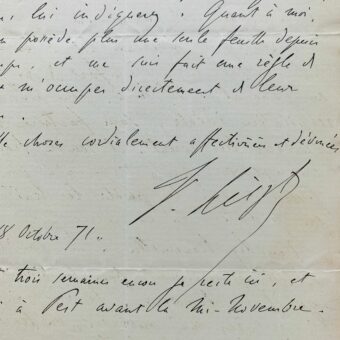 lui indiquerez. Quant à moi,
possède plus une seule feuille depuis
et me suis fait une règle de
m'occuper directement de leur
choses cordialement affectueuses et dévouées
F. Liszt
8 Octobre 71.
trois semaines encore je reste ici, et
à Pest avant la mi-Novembre.